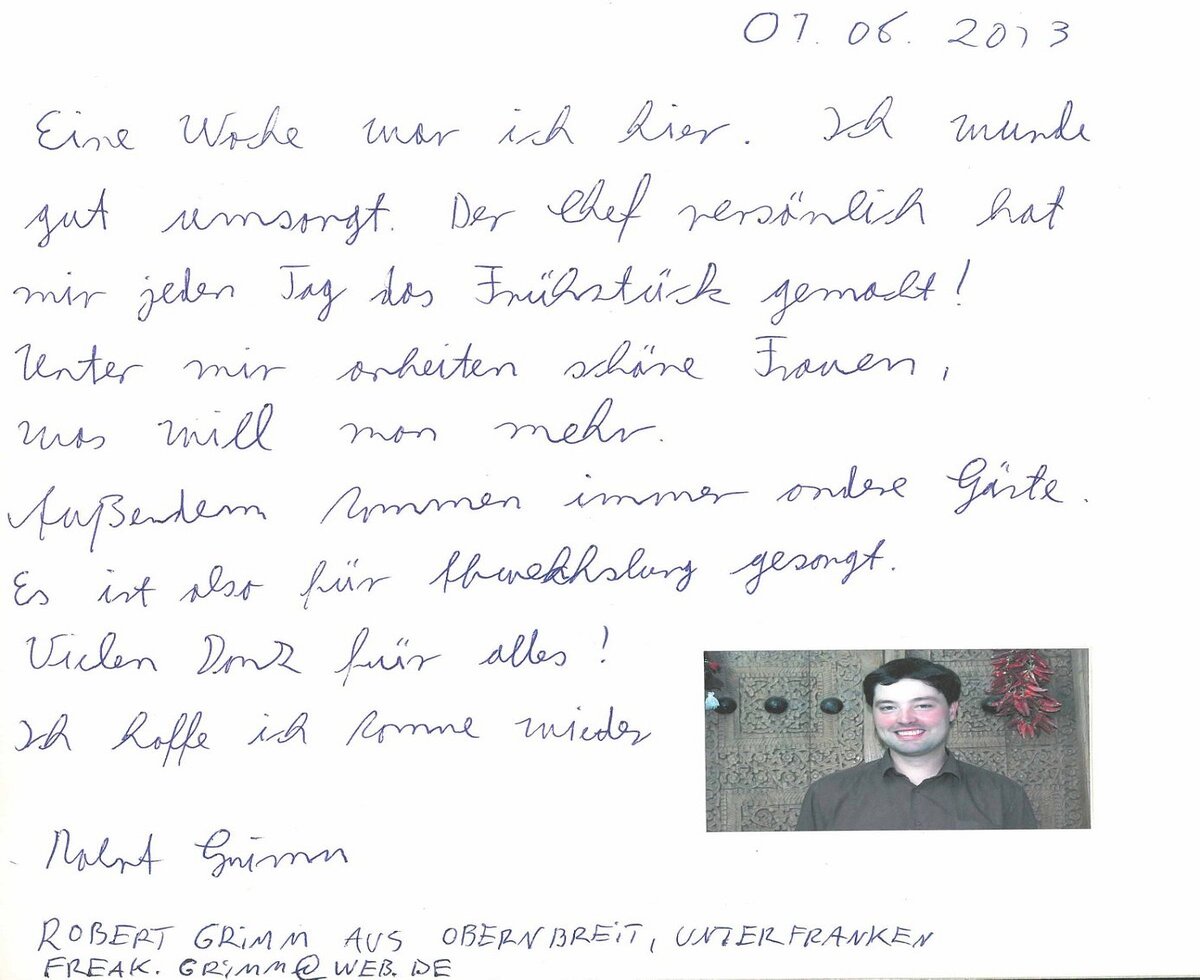 07.06.2013
Eine Woche war ich hier. Ich wurde
gut umsorgt. Der Chef persönlich hat
mir jeden Tag das Frühstück gemacht!
Unter mir arbeiten schöne Frauen,
was will man mehr.
Außerdem kommen immer andere Gäste.
Es ist also für Abwechslung gesorgt.
Vielen Dank für alles!
Ich hoffe ich komme wieder
Robert Grimm
ROBERT GRIMM AUS OBERNBREIT, UNTERFRANKEN
FREAK.GRIMM@WEB.DE